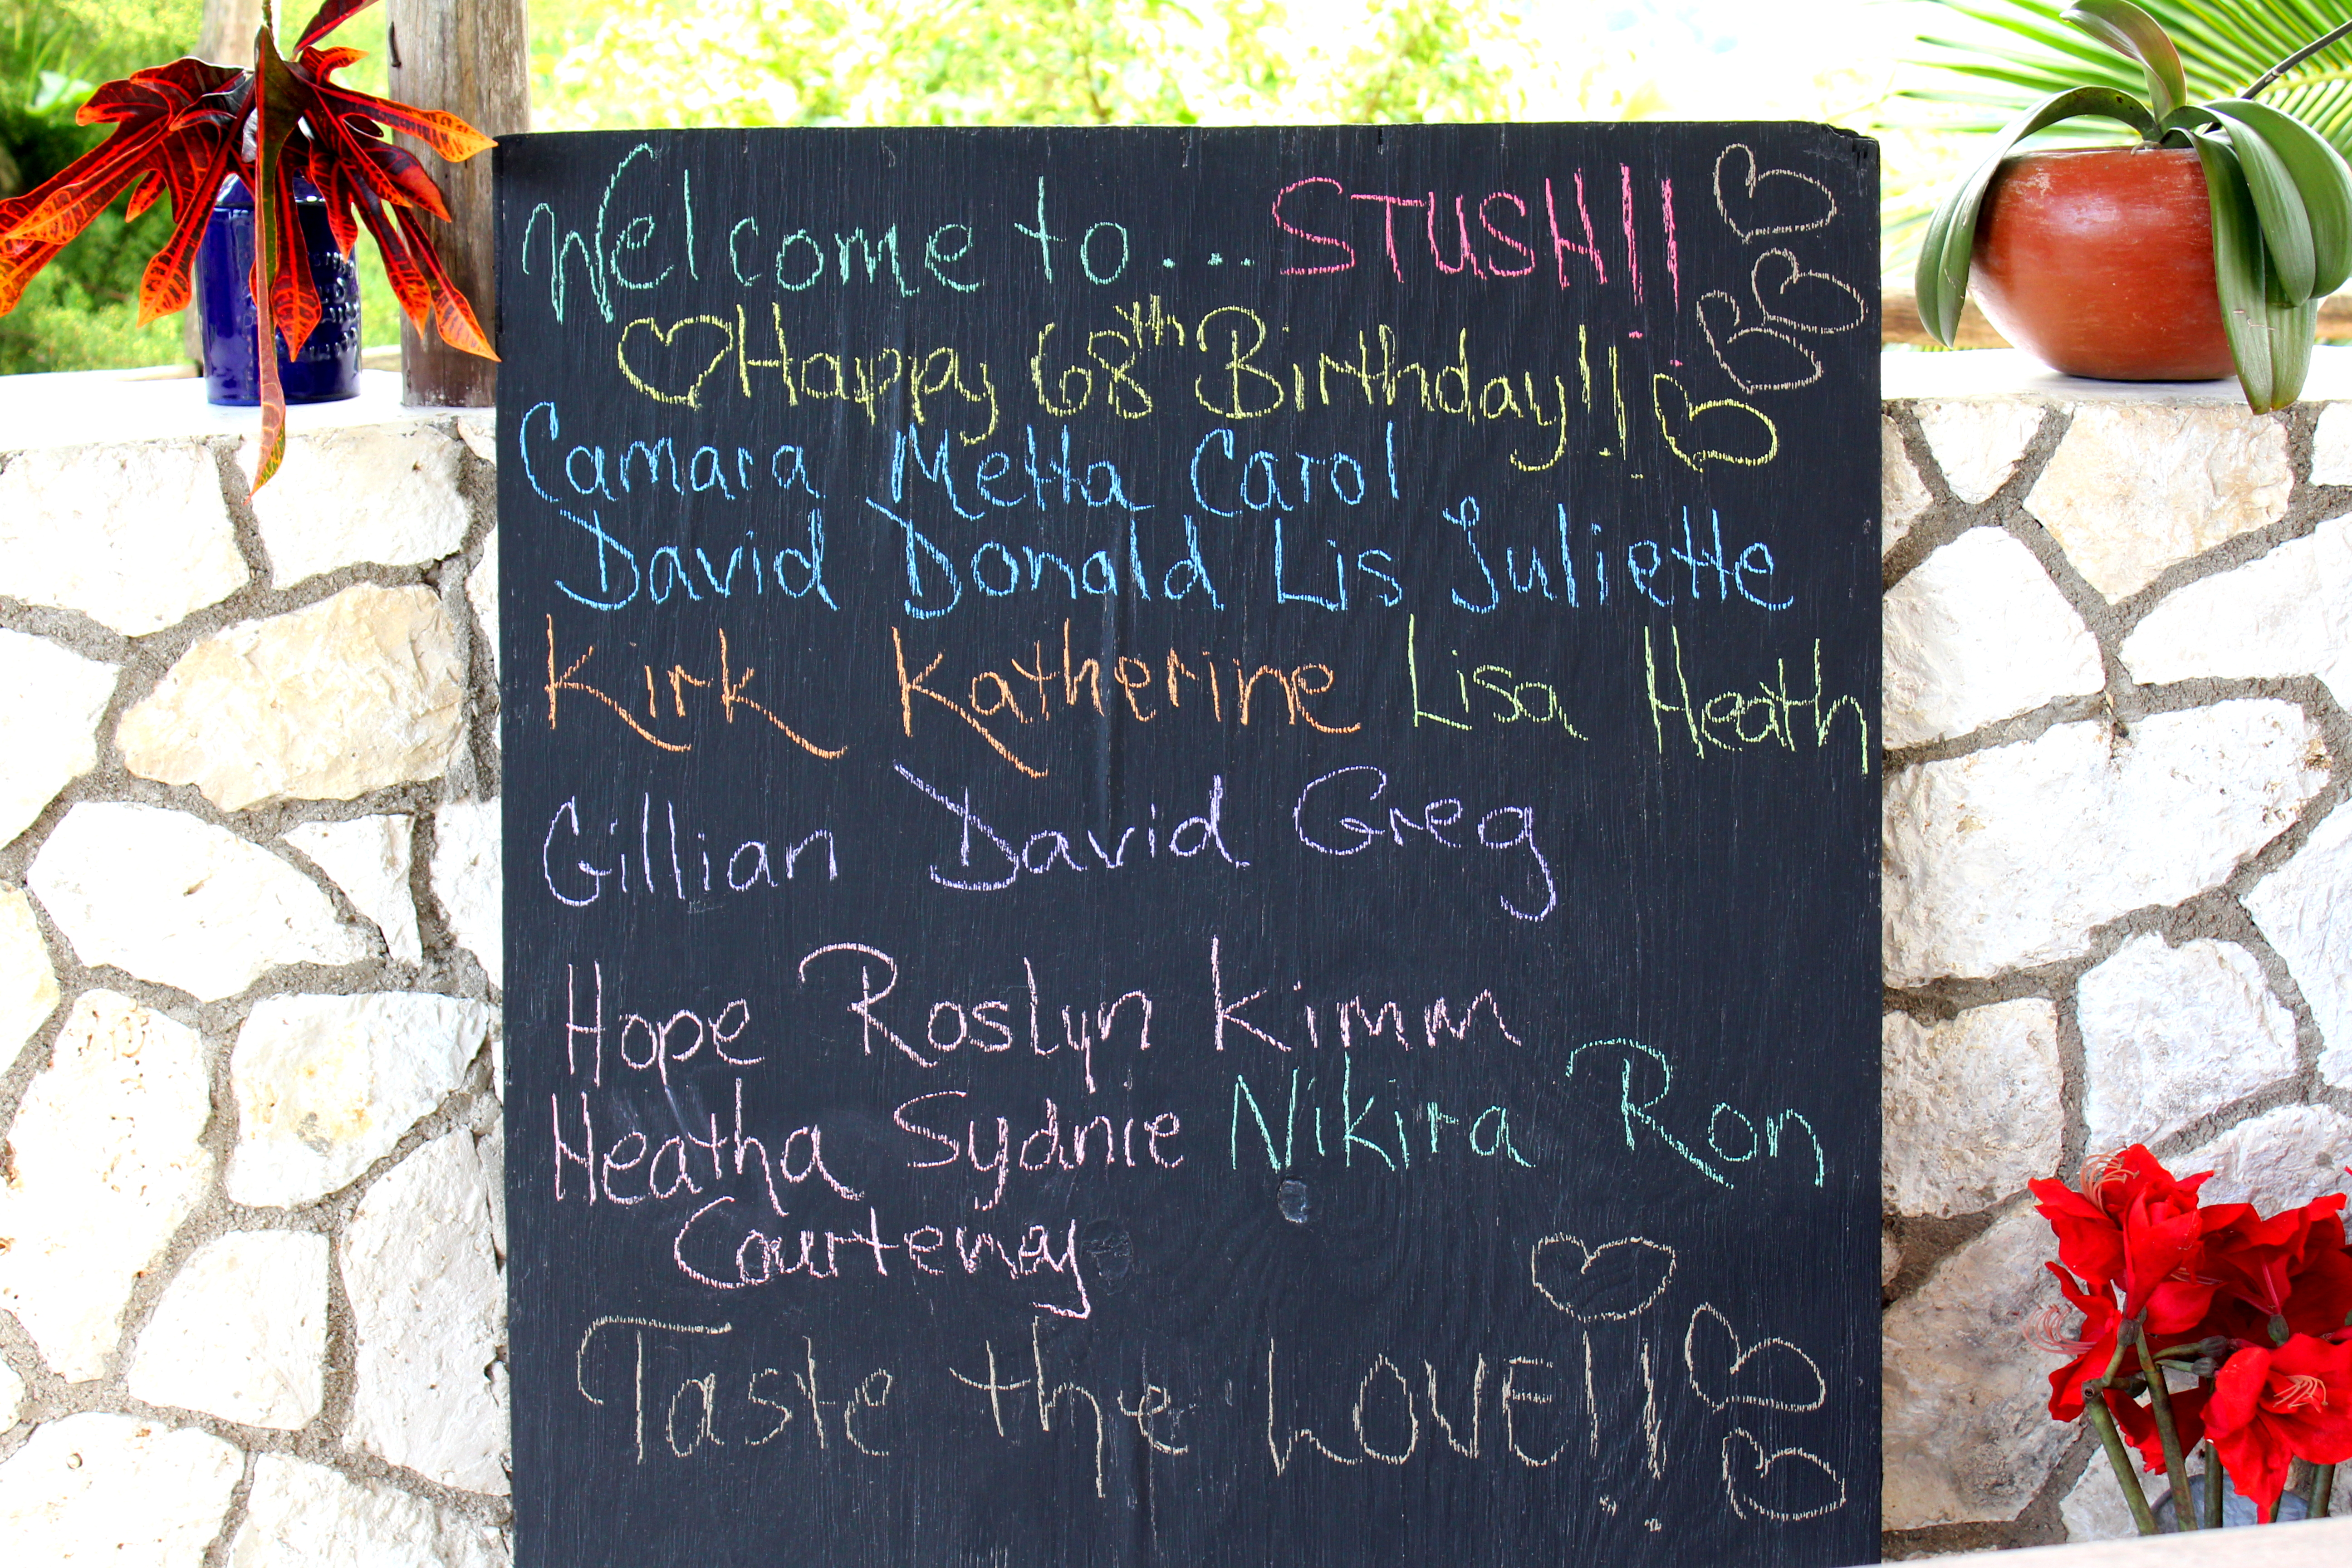 Welcome to... STUSH!!
Happy 68th Birthday!!
Camara Metta Carol
David Donald Lis Juliette
Kirk Katherine Lisa Heath
Gillian David Greg
Hope Roslyn Kimm
Heatha Sydnie Nikira Ron
Courtenay
Taste the LOVE!!